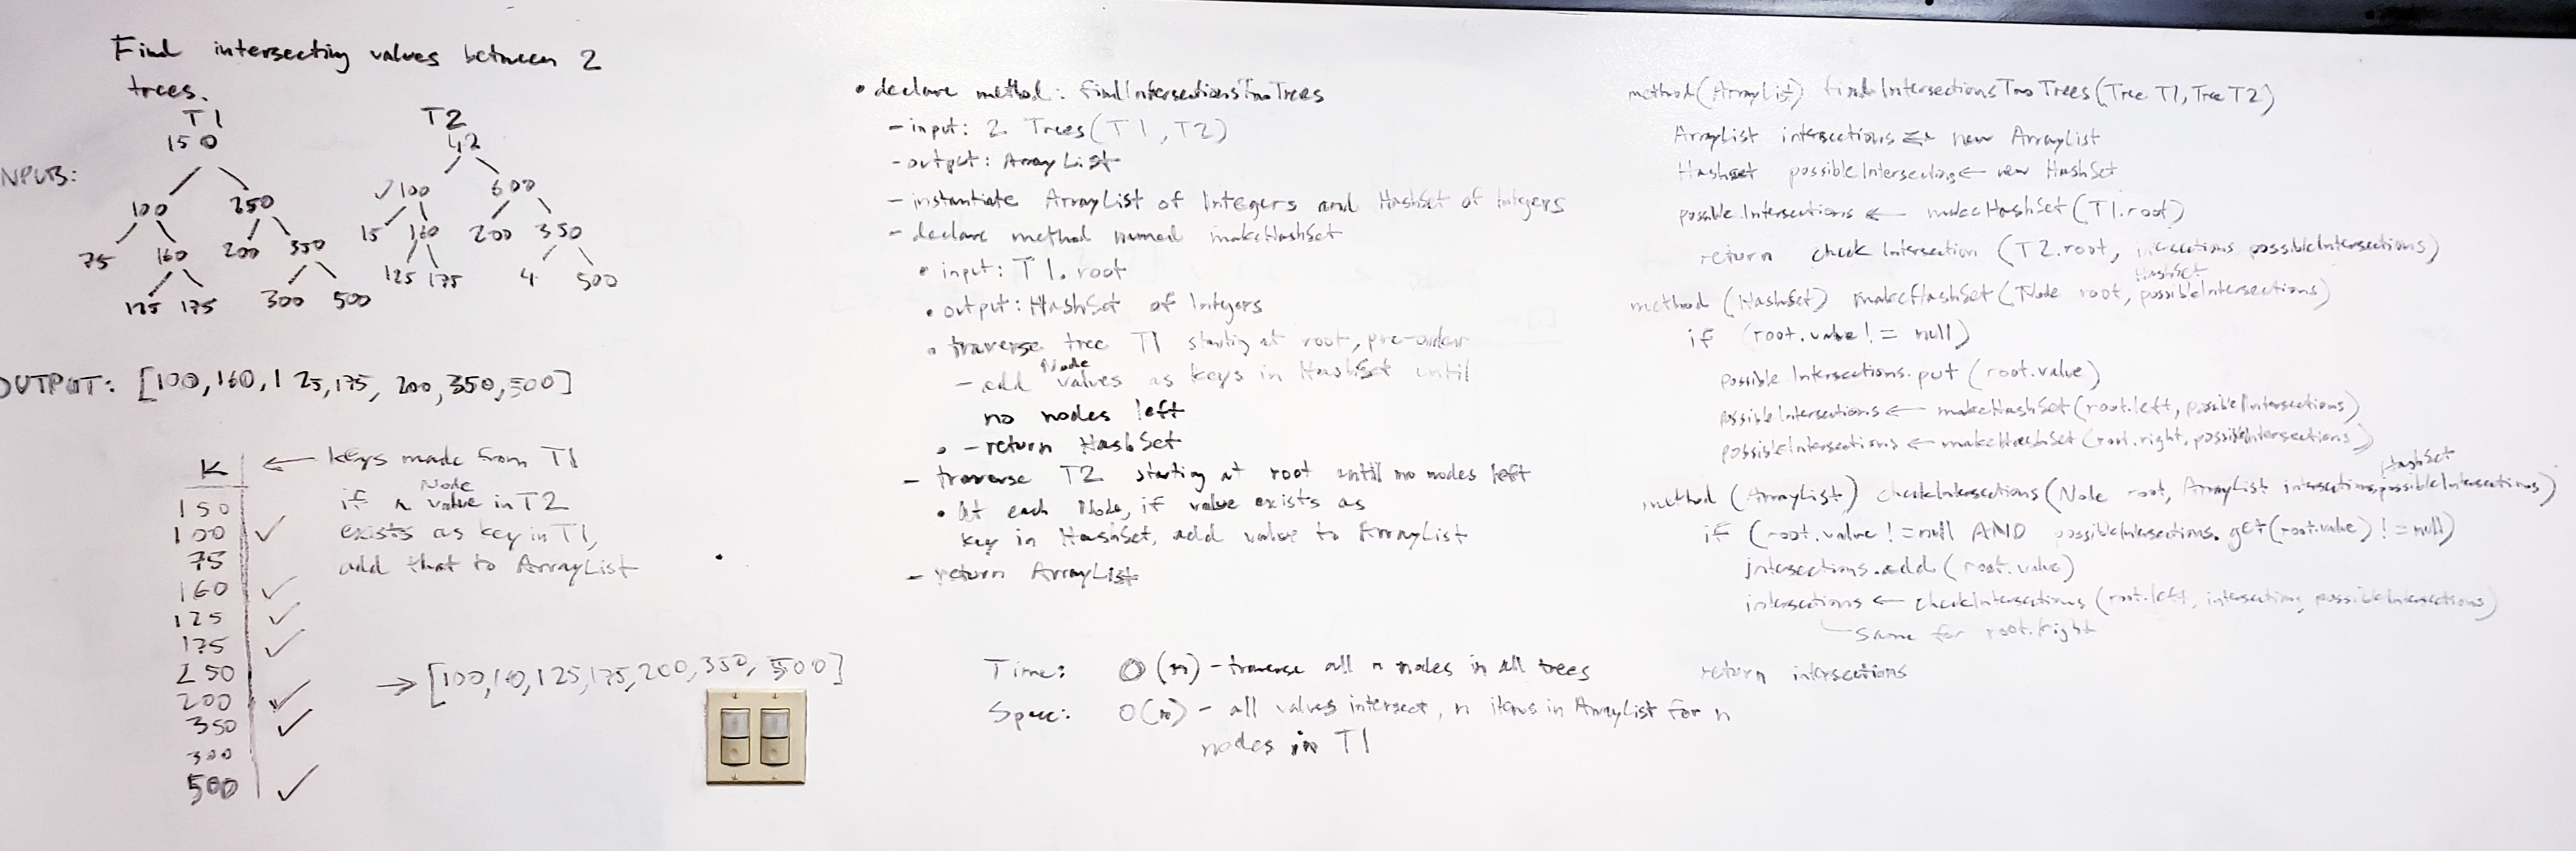 Find intersecting values between 2
trees.
T1
150
100 250
75 160 200 350
125 175 300 500
T2
42
100 600
15 160 200 350
125 175 4 500
INPUTS:
OUTPUT: [100,160,125,175, 200,350,500]
K ← keys made from T1
150
100 ✓
75
160 ✓
125 ✓
175 ✓
250
200 ✓
350 ✓
300
500 ✓
if a Node value in T2
exists as key in T1,
add that to ArrayList
→ [100,160,125,175,200,350,500]
• declare method: findIntersectionsTwoTrees
- input: 2 Trees (T1, T2)
- output: ArrayList
- instantiate ArrayList of Integers and HashSet of Integers
- declare method named makeHashSet
• input: T1.root
• output: HashSet of Integers
• traverse tree T1 starting at root, pre-order
- add Node values as keys in HashSet until
no nodes left
• - return HashSet
- traverse T2 starting at root until no nodes left
• At each Node, if value exists as
key in HashSet, add value to ArrayList
- return ArrayList
Time: O(n) - traverse all n nodes in all trees
Space: O(n) - all values intersect, n items in ArrayList for n
nodes in T1
method(ArrayList) findIntersectionsTwoTrees(Tree T1, Tree T2)
ArrayList intersections ← new ArrayList
Hashset possibleIntersections ← new HashSet
possibleIntersections ← makeHashSet(T1.root)
return checkIntersection (T2.root, intersections, possibleIntersections)
method (HashSet) makeHashSet(Node root, HashSet possibleIntersections)
if (root.value != null)
possibleIntersections.put(root.value)
possibleIntersections ← makeHashSet(root.left, possibleIntersections)
possibleIntersections ← makeHashSet(root.right, possibleIntersections)
method (ArrayList) checkIntersections(Node root, ArrayList intersections, HashSet possibleIntersections)
if (root.value != null AND possibleIntersections.get(root.value) != null)
intersections.add(root.value)
intersections ← checkIntersections(root.left, intersections, possibleIntersections)
same for root.right
return intersections